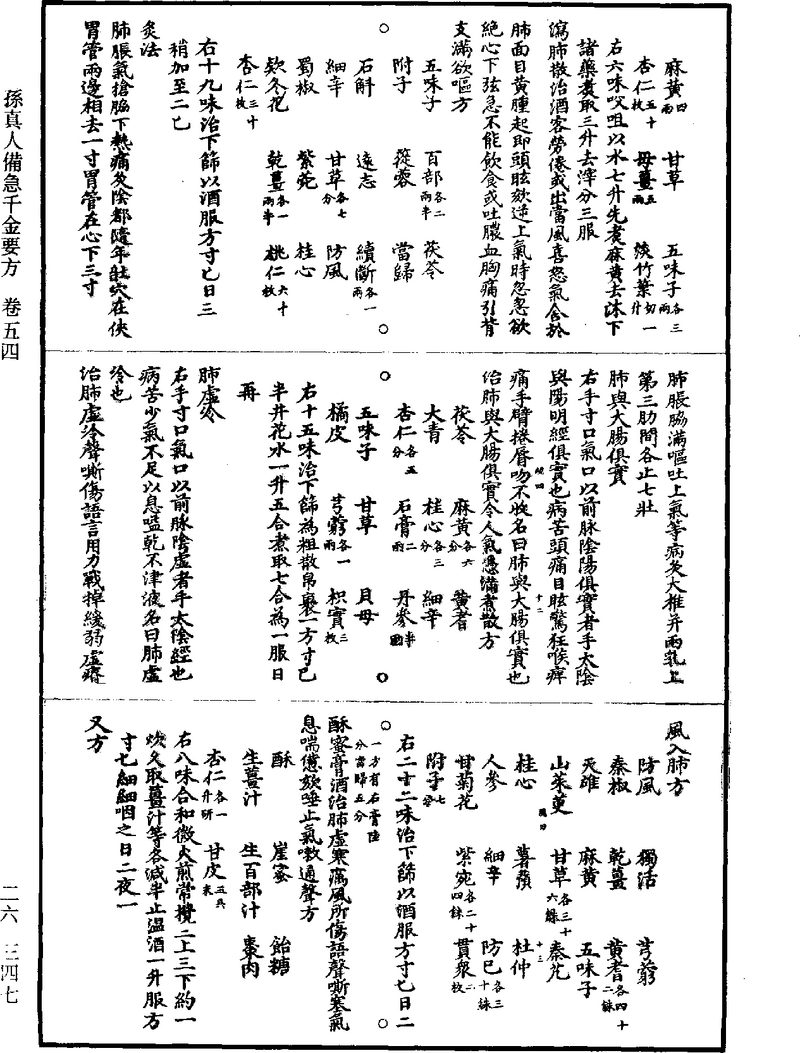 孫真人備急千金要方 卷五四
麻黃四兩 甘草 五味子各三兩
杏仁五十枚 母薑五兩 淡竹葉切一升
右六味㕮咀以水七升先煮麻黃去沫下
諸藥煮取三升去滓分三服
瀉肺散治酒客勞倦或出當風喜怒氣舍於
肺面目黃腫起即頭眩欬逆上氣時忽忽欲
絕心下弦急不能飲食或吐膿血胸痛引背
支滿欲嘔方
五味子 百部各二兩半 茯苓
附子 蓯蓉 當歸
石斛 遠志 續斷各一兩
細辛 甘草各七分 防風
蜀椒 紫菀 桂心
欵冬花 乾薑各一兩半 桃仁六十枚
杏仁三十枚
右十九味治下篩以酒服方寸匕日三
稍加至二匕
灸法
肺脹氣搶脇下熱痛灸陰都隨年壯穴在俠
胃管兩邊相去一寸胃管在心下三寸
肺脹脇滿嘔吐上氣等病灸大椎并兩乳上
第三肋間各止七壯
肺與大腸俱實
右手寸口氣口以前脉陰陽俱實者手太陰
與陽明經俱實也病苦頭痛目眩驚狂喉痺
痛手臂捲唇吻不收名曰肺與大腸俱實也
治肺與大腸俱實令人氣憑滿煮散方
茯苓 麻黃各六分 黃耆
大青 桂心各三分 細辛
杏仁各五分 石膏二兩 丹參半兩
五味子 甘草 貝母
橘皮 芎藭各一兩 枳實三枚
右十五味治下篩為粗散帛裹一方寸匕
半井花水一升五合煮取七合為一服日
再
肺虛冷
右手寸口氣口以前脉陰虛者手太陰經也
病苦少氣不足以息嗌乾不津液名曰肺虛
冷也
治肺虛冷聲嘶傷語言用力戰掉緩弱虛瘠
風入肺方
防風 獨活 芎藭
秦椒 乾薑 黃耆各四十二銖
天雄 麻黃 五味子
山茱萸 甘草各三十六銖 秦艽
桂心 薯蕷 杜仲
人參 細辛 防己各三十銖
甘菊花 紫菀各二十四銖 貫衆二枚
附子七分
右二十二味治下篩以酒服方寸匕日二
一方有石膏陸
分當歸五分
酥蜜膏酒治肺虛寒癘風所傷語聲嘶塞氣
息喘憊欬唾止氣嗽通聲方
酥 崖蜜 飴糖
生薑汁 生百部汁 棗肉
杏仁各一升研 甘皮五具末
右八味合和微火煎常攪二上三下約一
炊久取薑汁等各減半止溫酒一升服方
寸匕細細咽之日二夜一
又方
二六 三四七